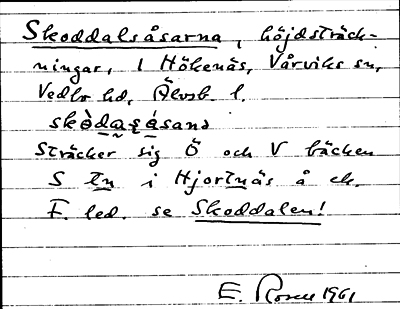 Skoddalsåsarna, höjdsträck-
ningar, i Hökenäs, Vårviks sn,
Vedbo hd, Älvsb. l.
skòdaṣásanɔ
Sträcker sig Ö och V bäcken
S tn i Hjortnäs å ek.
F. led. se Skoddalen!
E. Rosell 1961